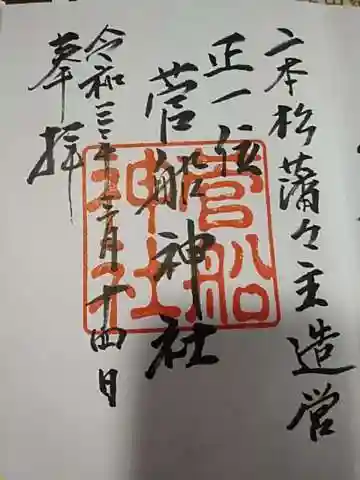 二本松藩々主造営
正一位
菅船神社
令和三年十二月十四日
奉拝
菅船
神社